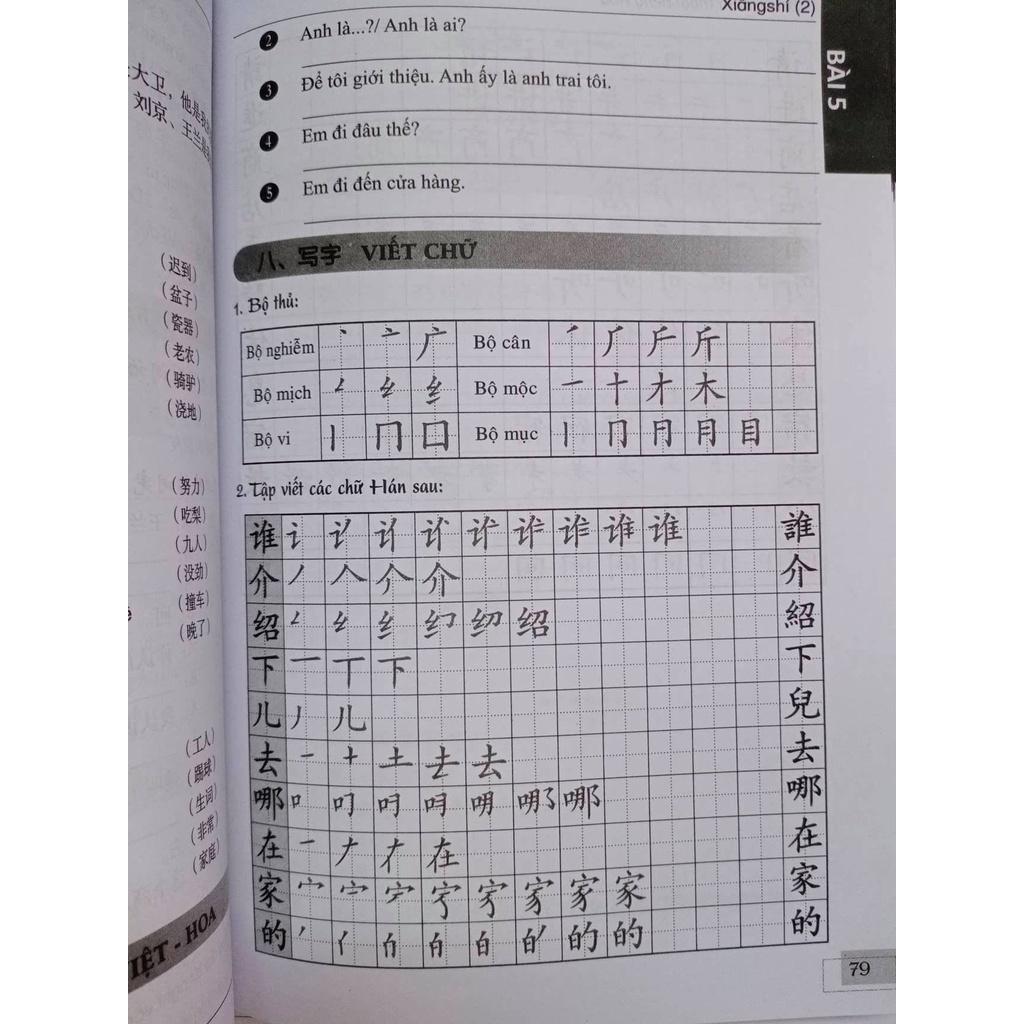 大卫, 他是我
刘京、王兰是
(迟到)
(盆子)
(瓷器)
(老农)
(骑驴)
(浇地)
(努力)
(吃梨)
(九人)
(没劲)
(撞车)
(晚了)
(工人)
(踢球)
(生词)
(非常)
(家庭)
IỆT - HOA
Xiāngshí (2)
BÀI 5
2 Anh là...?/ Anh là ai?
3 Để tôi giới thiệu. Anh ấy là anh trai tôi.
4 Em đi đâu thế?
5 Em đi đến cửa hàng.
八、写字 VIẾT CHỮ
1. Bộ thủ:
Bộ nghiễm 丶 亠 广 Bộ cân 丿 厂 斤
Bộ mịch 纟 Bộ mộc 一 十 才 木
Bộ vi 丨 冂 口 Bộ mục 丨 冂 月 目
2. Tập viết các chữ Hán sau:
谁 讠 谁 誰
介 丿 人 介 介
绍 纟 绍 紹
下 一 丅 下 下
儿 丿 儿 兒
去 一 十 土 去 去
哪 口 叨 哪 哪
在 一 ナ 在 在
家 宀 家 家
的 丿 亻 白 的 的 的
79